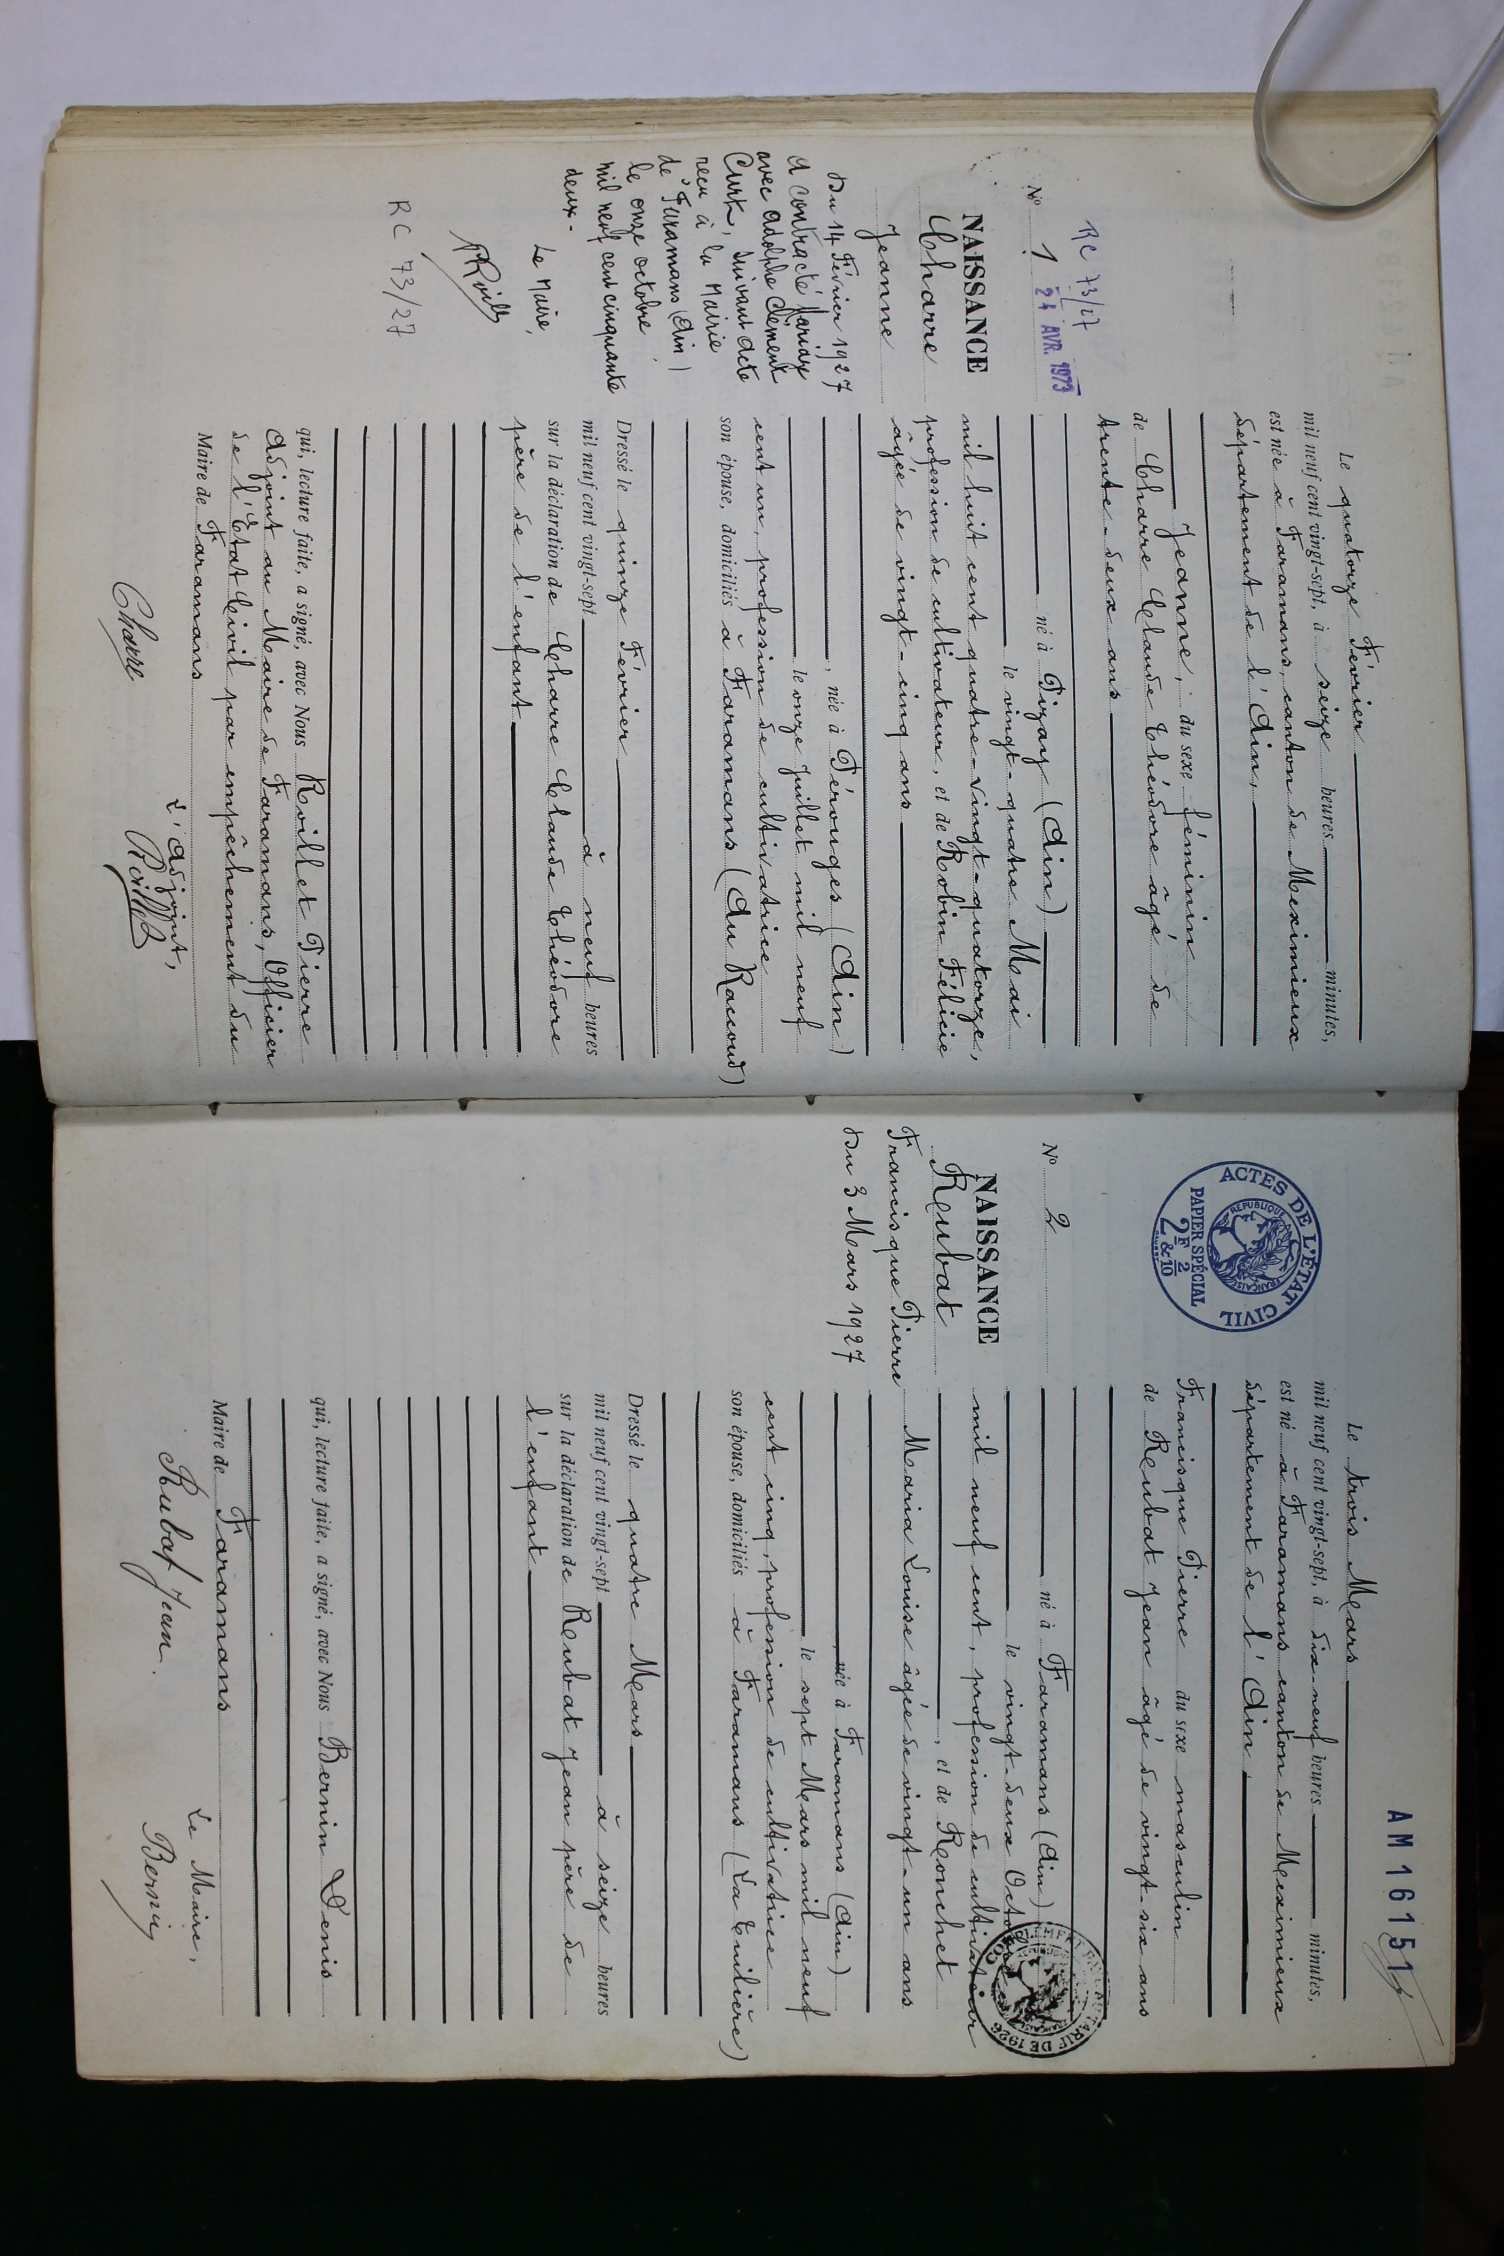 RC 73/27
N° 1
24 AVR. 1973
NAISSANCE
Charre
Jeanne
Du 14 Février 1927
a contracté Mariage
avec Adolphe Clément
Curt, suivant acte
reçu à la Mairie
de Faramans (Ain)
le onze octobre
mil neuf cent cinquante
deux.
Le Maire,
RC 73/27
Le quatorze Février
mil neuf cent vingt-sept, à seize heures minutes,
est née à Faramans, canton de Meximieux
département de l'Ain,
Jeanne, du sexe féminin
de Charre Claude Théodore âgé de
trente-deux ans
né à Pizay (Ain)
le vingt-quatre Mai
mil huit cent quatre-vingt-quatorze,
profession de cultivateur, et de Robin Félicie
âgée de vingt-cinq ans
, née à Pérouges (Ain)
le onze Juillet mil neuf
cent un, profession de cultivatrice
son épouse, domiciliés à Faramans (Au Raccoud)
Dressé le quinze Février
mil neuf cent vingt-sept à neuf heures
sur la déclaration de Charre Claude Théodore
père de l'enfant
qui, lecture faite, a signé, avec Nous Roillet Pierre
Adjoint au Maire de Faramans, Officier
de l'Etat Civil par empêchement du
Maire de Faramans
L'Adjoint,
Charre
Roillet
AM 16151
ACTES DE L'ÉTAT CIVIL
REPUBLIQUE FRANÇAISE
PAPIER SPÉCIAL
2F 2/10
N° 2
NAISSANCE
Reubat
Francisque Pierre
Du 3 Mars 1927
Le trois Mars
mil neuf cent vingt-sept, à dix-neuf heures minutes,
est né à Faramans canton de Meximieux
département de l'Ain,
Francisque Pierre du sexe masculin
de Reubat Jean âgé de vingt-six ans
né à Faramans (Ain)
le vingt-deux Octobre
mil neuf cent, profession de cultivateur
, et de Ronchet
Maria Louise âgée de vingt-un ans
née à Faramans (Ain)
le sept Mars mil neuf
cent cinq, profession de cultivatrice
son épouse, domiciliés à Faramans (La Tuilière)
Dressé le quatre Mars
mil neuf cent vingt-sept à seize heures
sur la déclaration de Reubat Jean père de
l'enfant
qui, lecture faite, a signé, avec Nous Bernin Denis
Maire de Faramans
Le Maire,
Rubat Jean.
Bernin
TARIF DE 1926